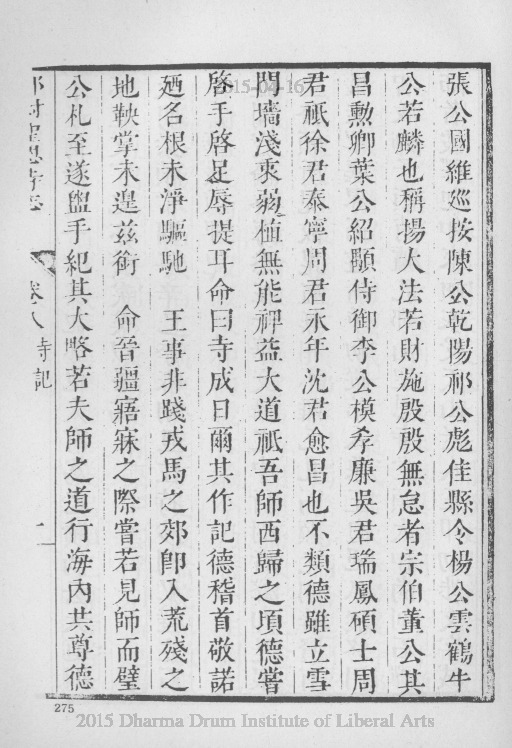 張公國維廵按陳公乾陽祁公彪佳縣令楊公雲鶴牛
公若麟也稱揚大法若財施殷殷無怠者宗伯董公其
昌勲卿葉公紹顒侍御李公模孝廉吳君瑞鳳碩士周
君祗徐君泰寧周君永年沈君愈昌也不類德雖立雪
門墻淺衷弱植無能禆益大道祗吾師西歸之頃德嘗
啓手啓足辱提耳命曰寺成日爾其作記德稽首敬諾
廼名根未淨驅馳 王事非踐戎馬之郊卽入荒殘之
地鞅掌未遑茲銜 命晉疆寤寐之際嘗若見師而璧
公札至遂盥手紀其大略若夫師之道行海內共尊德
卷八 寺記
275
2015-04-16
2015 Dharma Drum Institute of Liberal Arts